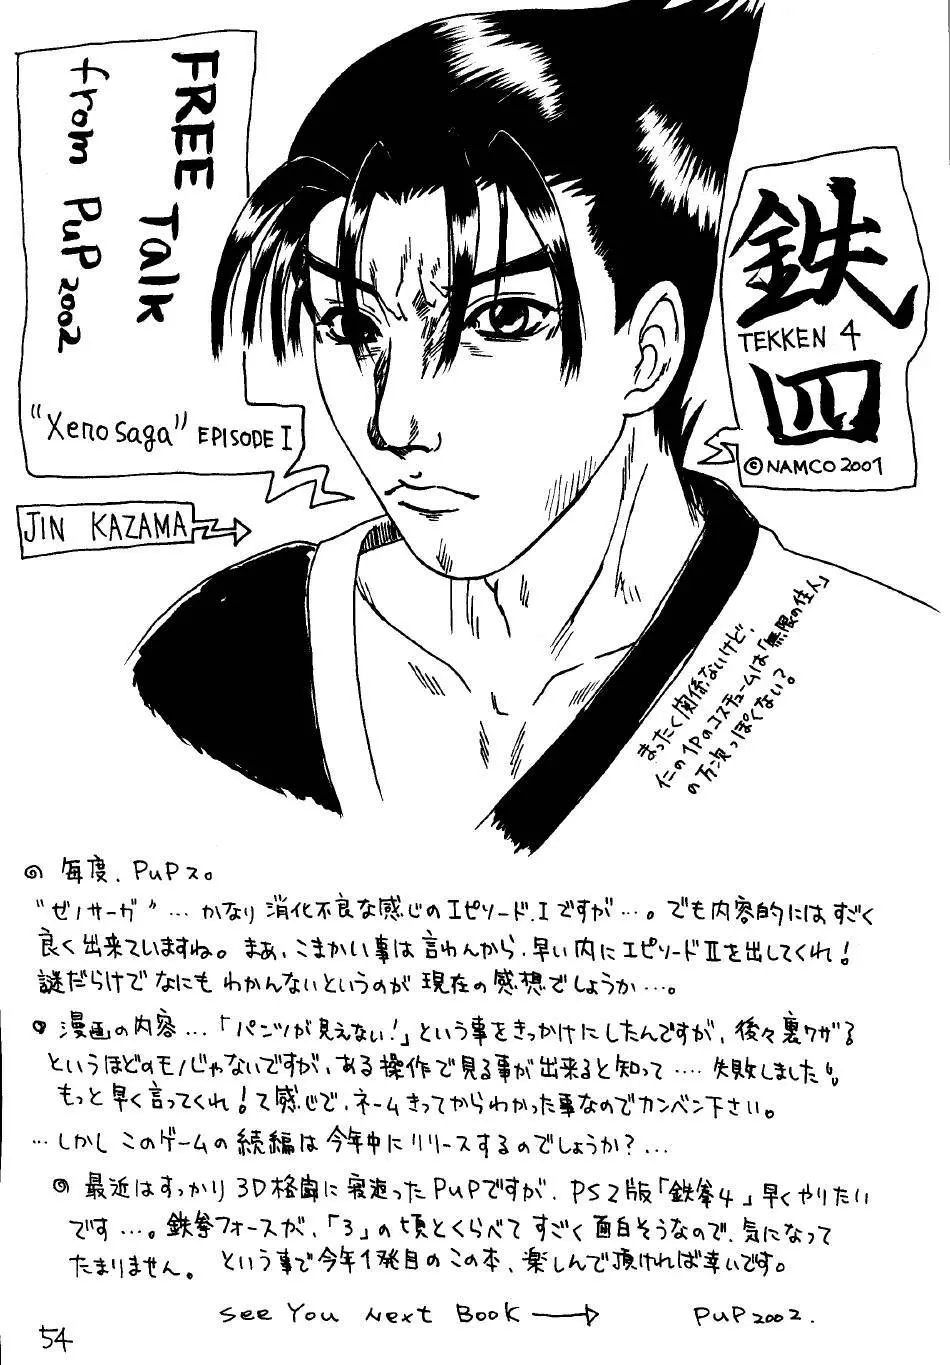 FREE Talk
from PuP 2002
"Xenosaga" EPISODE I
JIN KAZAMA
鉄
TEKKEN 4
四
©NAMCO 2001
まったく関係ないけど、
仁の1Pのコスチュームは「無限の住人」
の万次っぽくない?
毎度、PuPス。
"ゼノサーガ"…かなり消化不良な感じのエピソードIですが…。でも内容的にはすごく
良く出来ていますね。まぁ、こまかい事は言わんから、早い内にエピソードⅡを出してくれ!
謎だらけでなにもわかんないというのが現在の感想でしょうか…。
漫画の内容…「パンツが見えない!」という事をきっかけにしたんですが、後々裏ワザ
というほどのモノじゃないですが、ある操作で見る事が出来ると知って……失敗しました。
もっと早く言ってくれ!て感じで、ネームきってからわかった事なのでカンベン下さい。
…しかしこのゲームの続編は今年中にリリースするのでしょうか?…
最近はすっかり3D格闘に寝返ったPuPですが、PS2版「鉄拳4」早くやりたい
です…。鉄拳フォースが、「3」の頃とくらべてすごく面白そうなので、気になって
たまりません。という事で今年1発目のこの本、楽しんで頂ければ幸いです。
See You Next Book → PuP 2002.
54